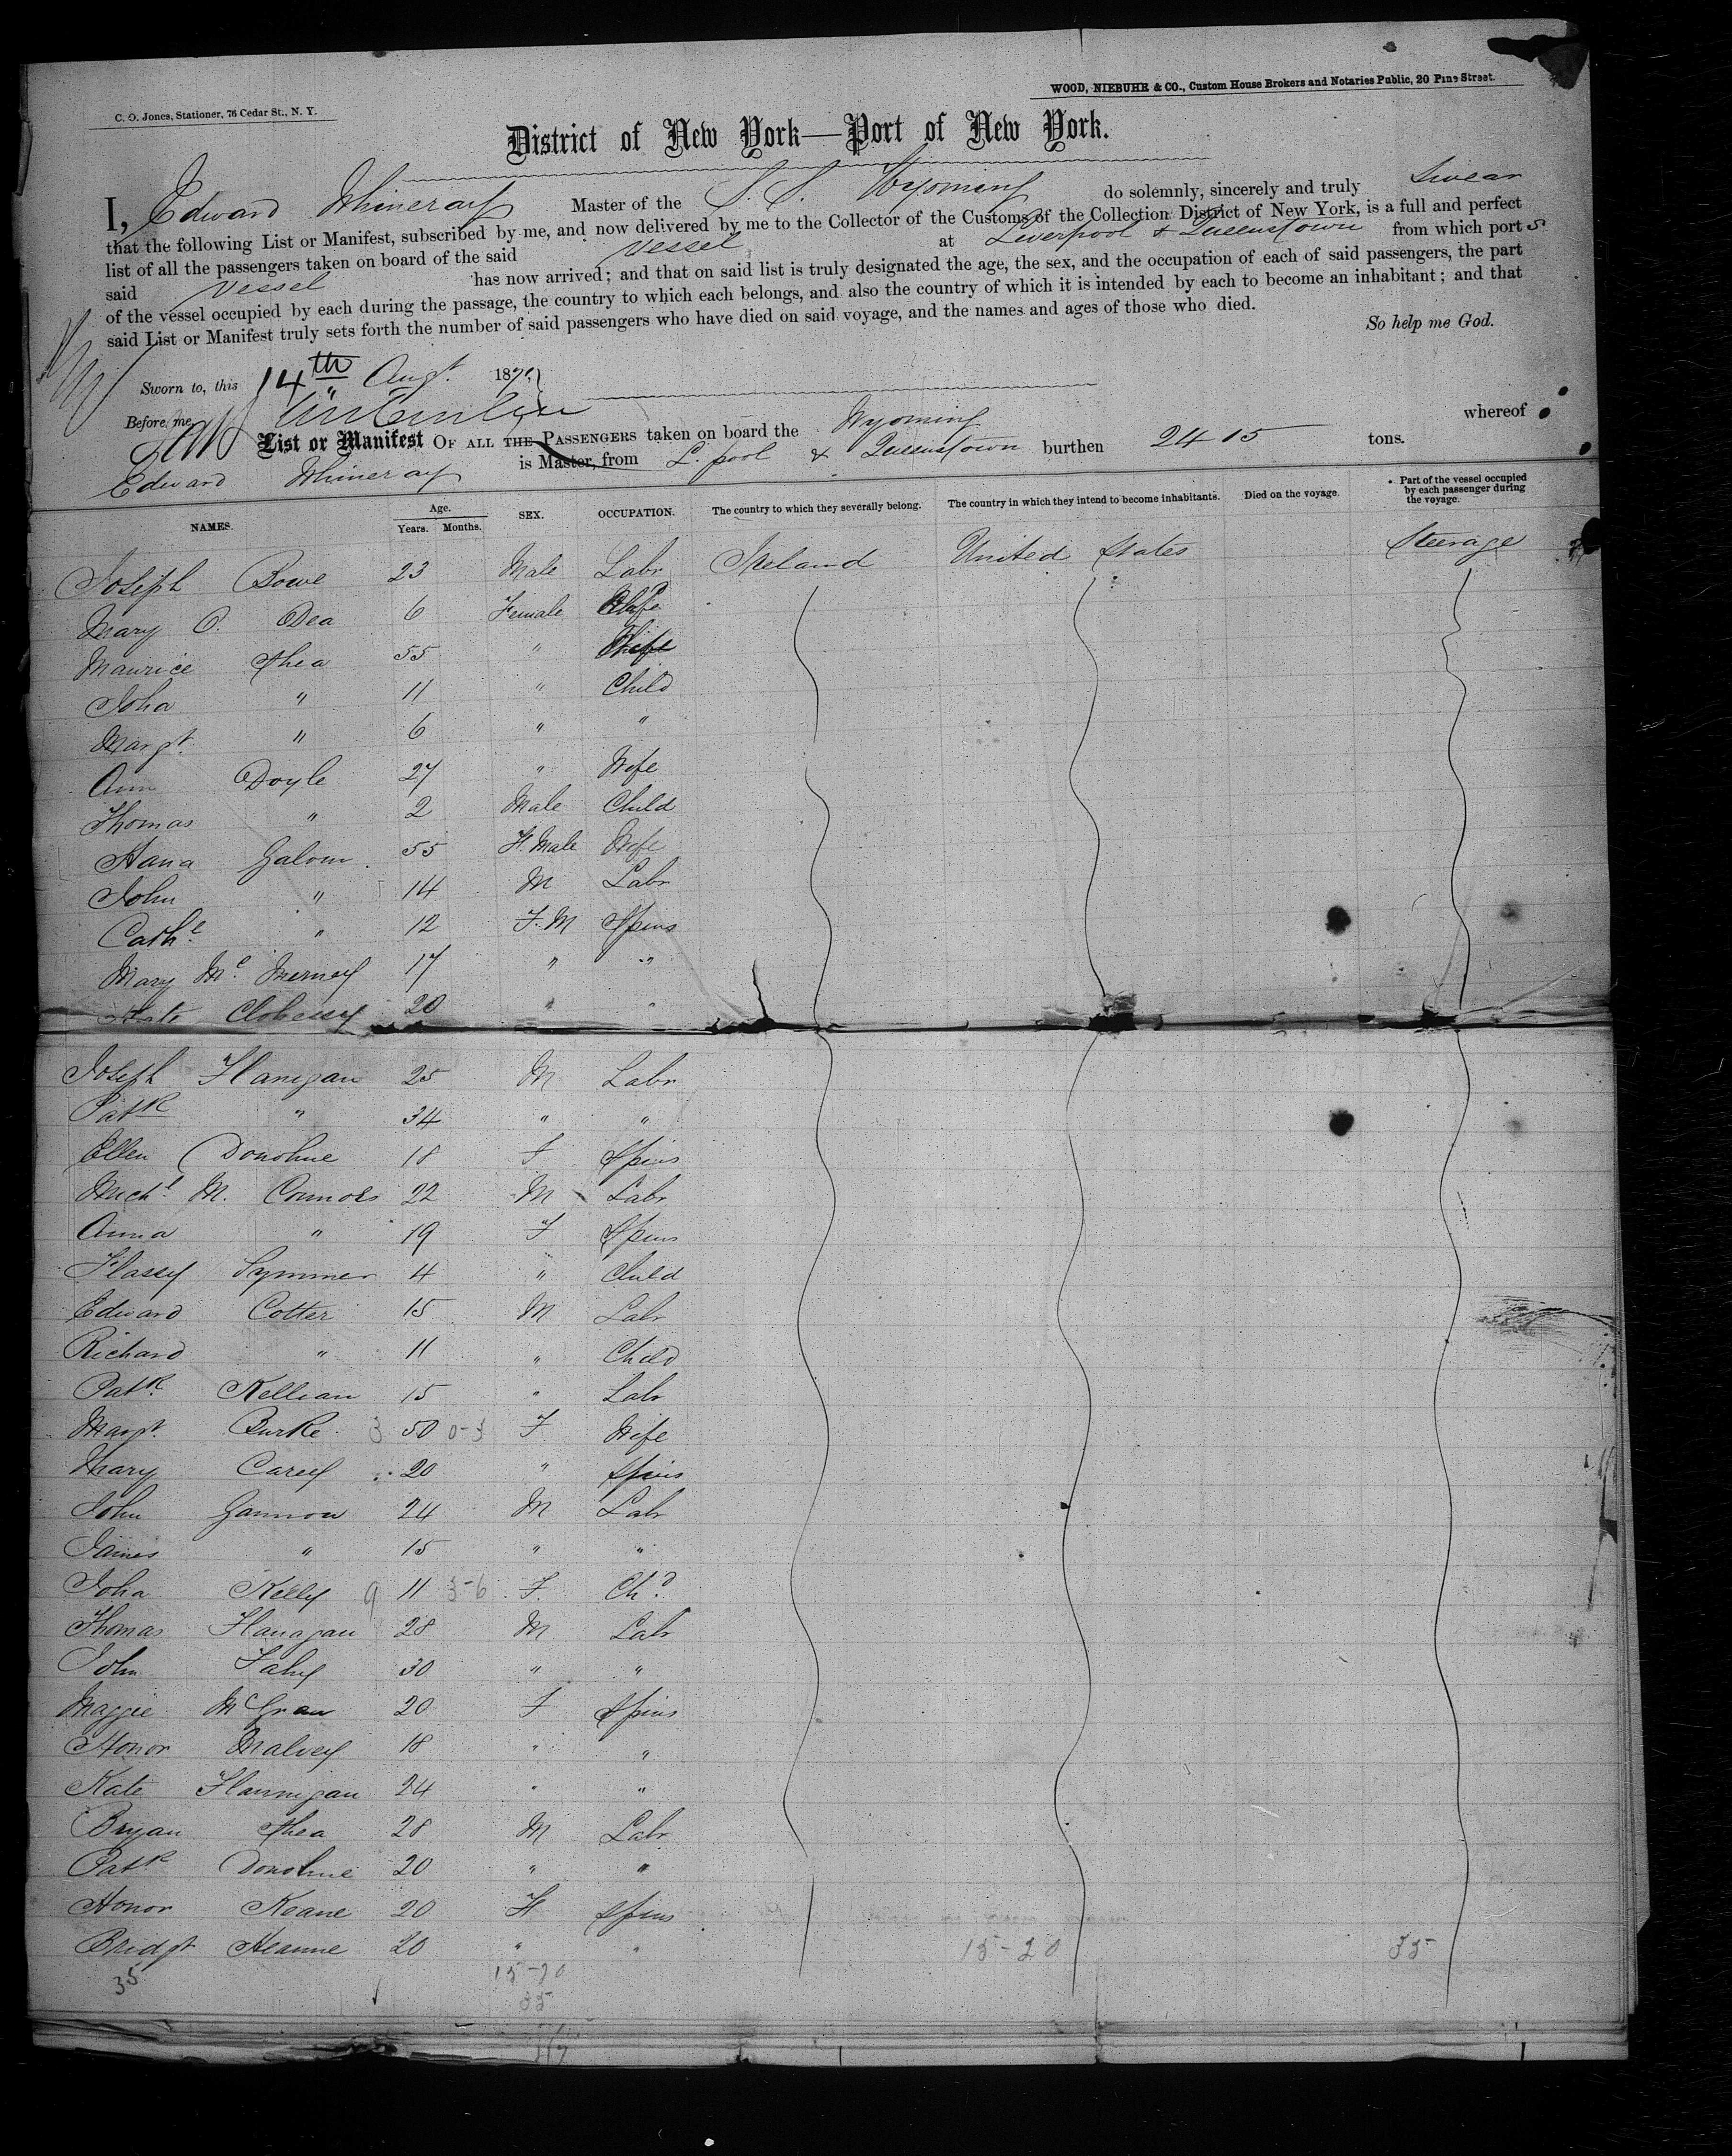 WOOD, NIEBUHR & CO., Custom House Brokers and Notaries Public, 20 Pine Street.
C. O. Jones, Stationer, 76 Cedar St., N. Y.
District of New York—Port of New York.
I, Edward Whineray Master of the S. S. Wyoming do solemnly, sincerely and truly Swear
that the following List or Manifest, subscribed by me, and now delivered by me to the Collector of the Customs of the Collection District of New York, is a full and perfect
list of all the passengers taken on board of the said Vessel at Liverpool & Queenstown from which ports
said Vessel has now arrived; and that on said list is truly designated the age, the sex, and the occupation of each of said passengers, the part
of the vessel occupied by each during the passage, the country to which each belongs, and also the country of which it is intended by each to become an inhabitant; and that
said List or Manifest truly sets forth the number of said passengers who have died on said voyage, and the names and ages of those who died.
So help me God.
Sworn to, this 14th Augt. 1870
Before me
List or Manifest OF ALL THE PASSENGERS taken on board the Wyoming whereof
Edward Whineray is Master, from L. pool & Queenstown burthen 2415 tons.
NAMES. Age. Years. Months. SEX. OCCUPATION. The country to which they severally belong. The country in which they intend to become inhabitants. Died on the voyage. Part of the vessel occupied by each passenger during the voyage.
Joseph Bowe 23 Male Labr Ireland United States Steerage
Mary O. Dea 6 Female
Maurice Shea 55 " Wife
Joha " 11 " Child
Margt. " 6 " "
Ann Doyle 27 " Wife
Thomas " 2 Male Child
Hana Galvin 55 F. Male Wife
John " 14 M Labr
Cathe " 12 F. M Spins
Mary Mc Inerney 17 " "
Kate Clohessy 20 " "
Joseph Flanigan 25 M Labr
Patk " 34 " "
Ellen Donohue 18 F Spins
Michl M. Connors 22 M Labr
Anna " 19 F Spins
Symmer 4 " Child
Edward Cotter 15 M Labr
Richard " 11 " Child
Patk Kellian 15 " Labr
Margt. Burke 3 50 0-3 F Wife
Mary Carey 20 " Spins
John Gannon 24 M Labr
James " 15 " "
Joha Kelly 9 11 3-6 F. Chd
Thomas Flanagan 28 M Labr
John Fahy 30 " "
Maggie McGraw 20 F Spins
Honor Malvey 18 " "
Kate Flannigan 24 " "
Bryan Shea 28 M Labr
Patk Donohue 20 " "
Honor Keane 20 F Spins
Bridgt Heanne 20 " " 15-20 35
35 15-20
35